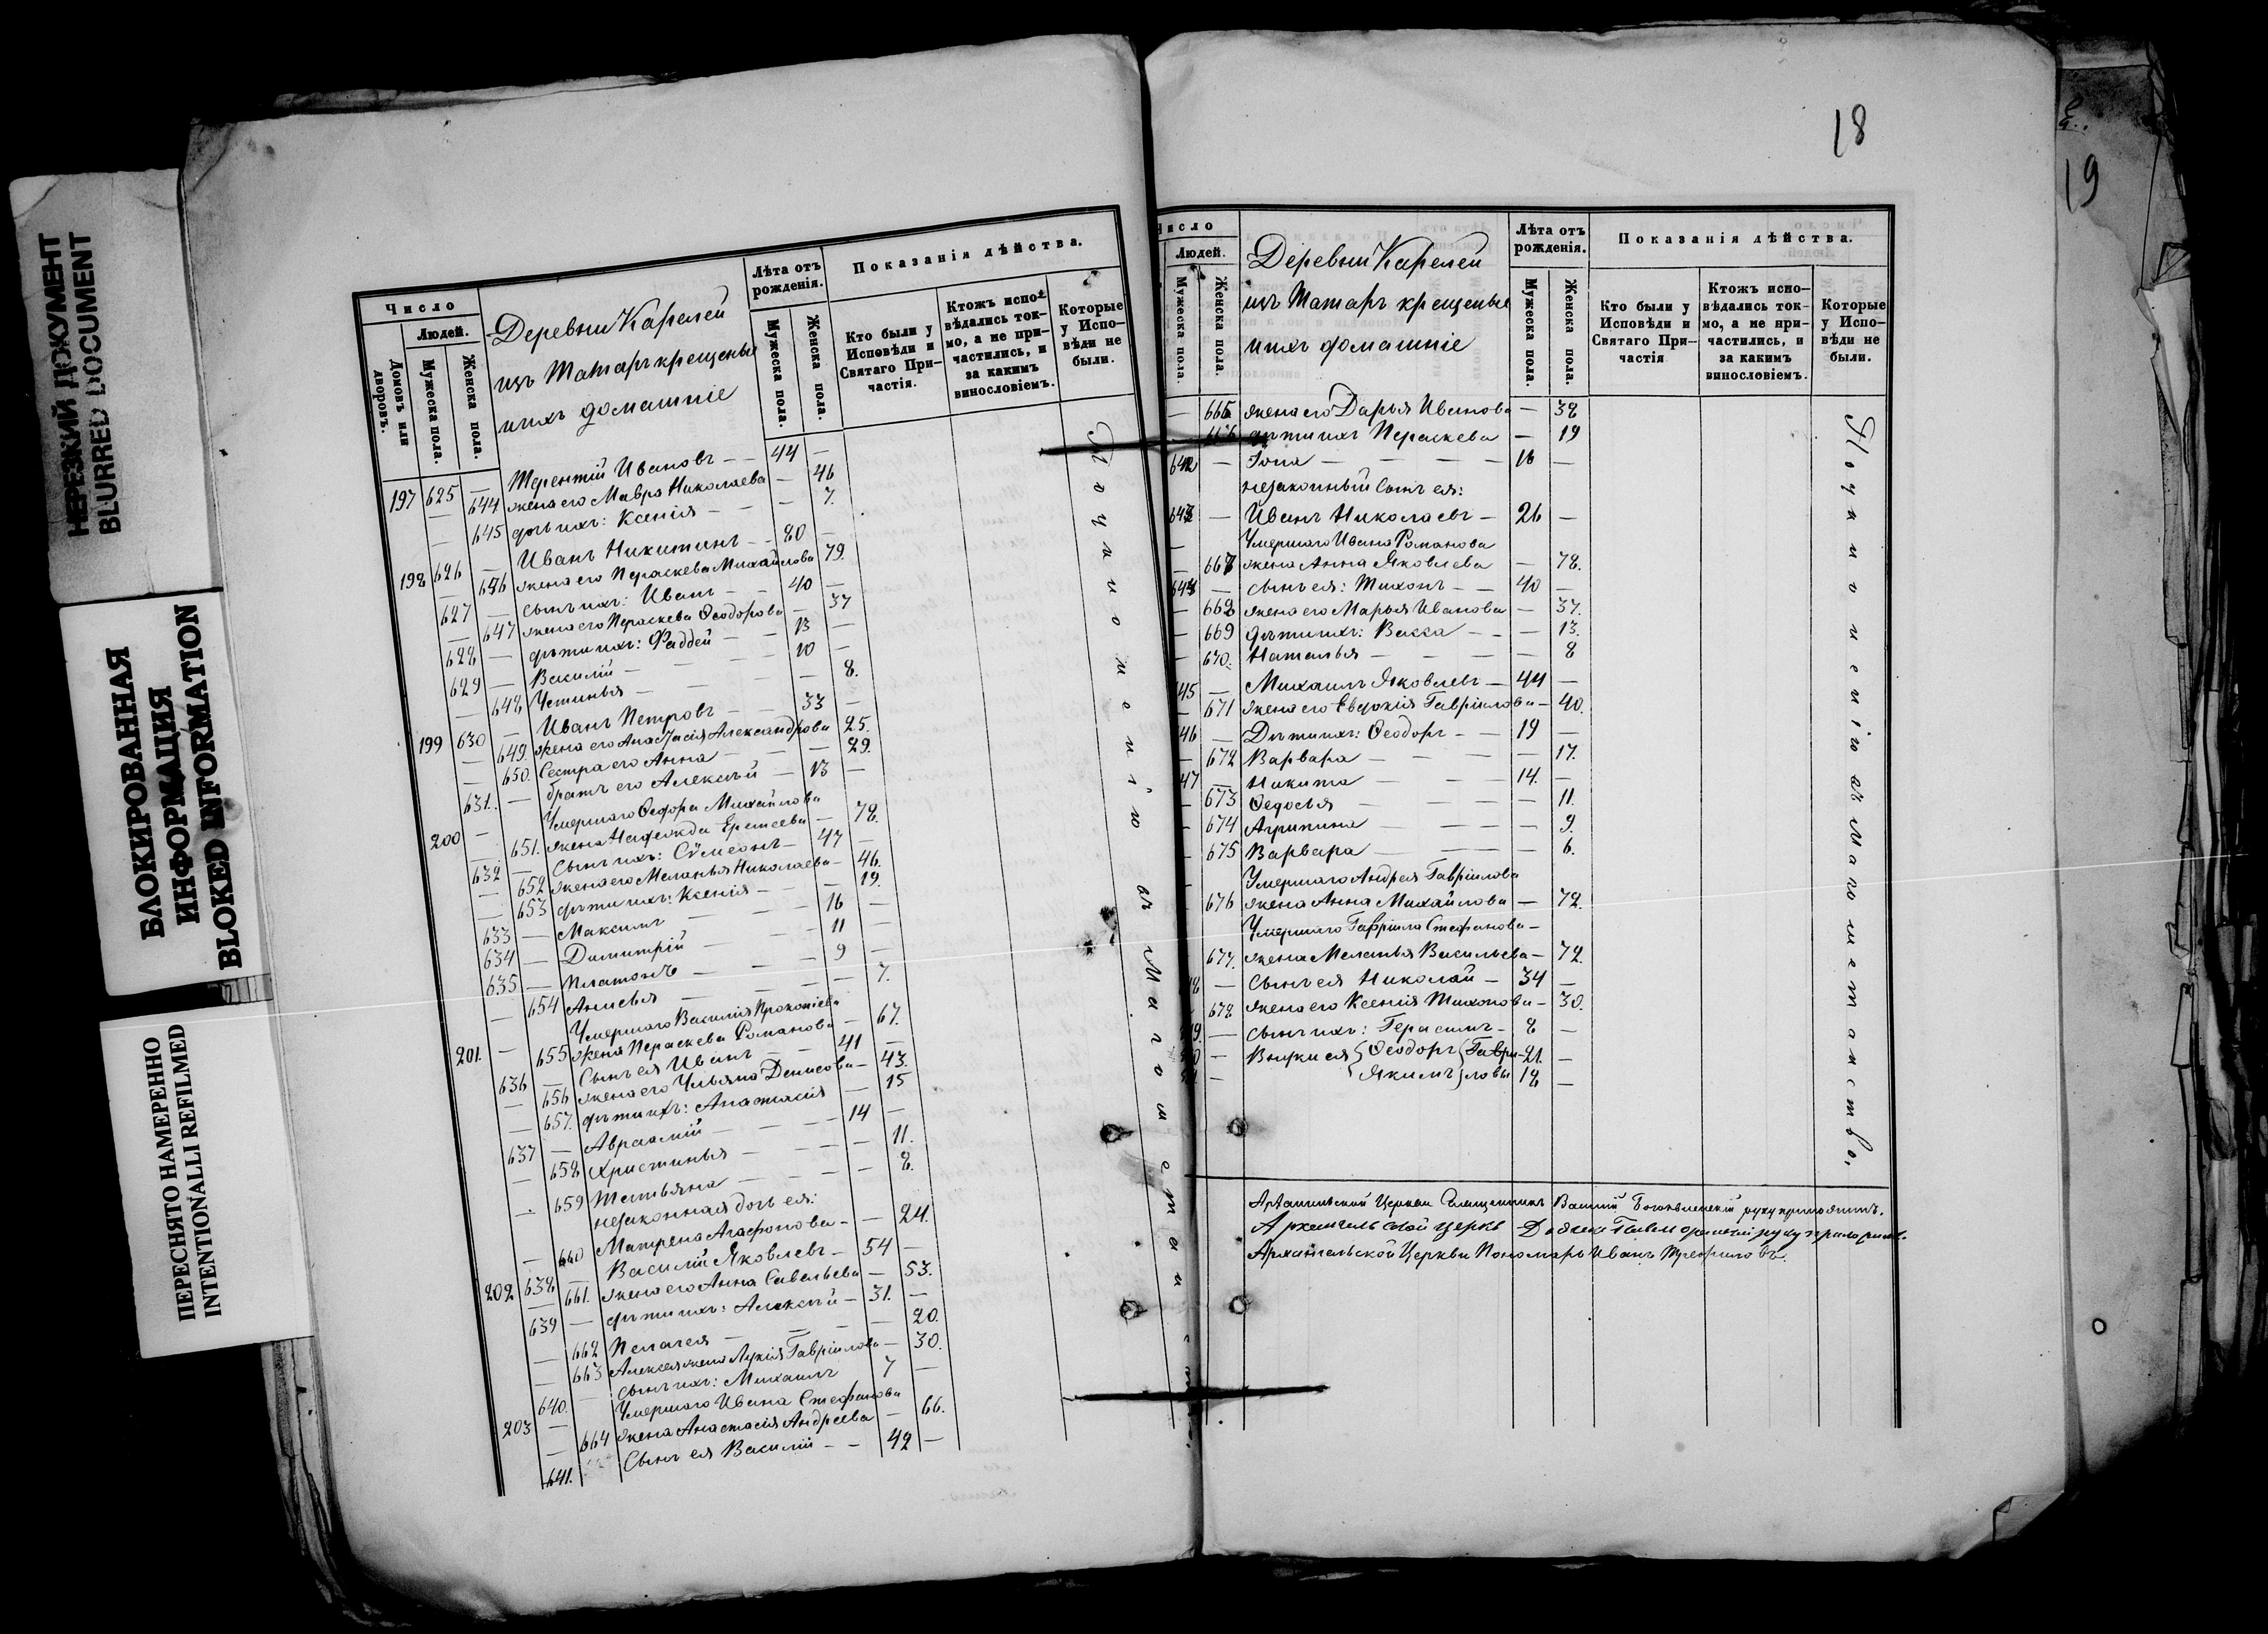 НЕРЕЗКИЙ ДОКУМЕНТ
BLURRED DOCUMENT
БЛОКИРОВАННАЯ
ИНФОРМАЦИЯ
BLOKED INFORMATION
ПЕРЕСНЯТО НАМЕРЕННО
INTENTIONALLI REFILMED
Число
Людей.
Домовъ или дворовъ.
Мужеска пола.
Женска пола.
Деревни Карелей
изъ Татаръ крещеные
и ихъ домашніе
Лѣта отъ рожденія.
Мужеска пола.
Женска пола.
Показанія дѣйства.
Кто были у Исповѣди и Святаго При-частія.
Ктожъ испо-вѣдались ток-мо, а не при-частились, и за какимъ винословіемъ.
Которые у Испо-вѣди не были.
197 625 — Терентій Ивановъ — — 44 —
— 644 жена его Мавра Николаева — 46
— 645 дочь ихъ: Ксенія — — — 7.
198 626 — Иванъ Никитинъ — — 80 —
— 646 жена его Параскева Михайлова 79.
627 — сынъ ихъ: Иванъ — — 40 —
— 647 жена его Параскева Ѳеодорова — 37
628 — дѣти ихъ: Фаддей — — 13 —
629 — Василій — — — 10 —
— 648 Устинья — — — — 8.
199 630 — Иванъ Петровъ — — 33 —
— 649. жена его Анастасія Александрова 25.
— 650. Сестра его Анна — — — 29.
631. — братъ его Алексѣй — 13 —
200 — Умершаго Ѳедора Михайлова
651. жена Надежда Еремеева — 78.
632 — Сынъ ихъ: Сѵмеонъ — 47 —
— 652 жена его Меланья Николаева — 46.
— 653 дѣти ихъ: Ксенія — — — 19.
633 — Максимъ — — — 16 —
634 — Димитрій — — — 11 —
635 — Платонъ — — — 9 —
— 654 Анисья — — — — 7.
201. — Умершаго Василія Прокопіева
655 жена Параскева Романова — 67.
636 — Сынъ ея Иванъ — — 41 —
— 656 жена его Ульяна Денисова — 43.
— 657. дѣти ихъ: Анастасія — 15
637 — Авраамій — — — 14 —
— 658 Христинья — — — — 11.
— 659 Татьяна — — — — 8.
незаконная дочь ея:
— 660 Матрена Агафонова — — 24.
202 638 — Василій Яковлевъ — 54 —
— 661. жена его Анна Савельева — 53.
639 — дѣти ихъ: Алексѣй — 31. —
— 662 Пелагея — — — — 20.
— 663 Алексея жена Лукія Гавріилова — 30.
640. — сынъ ихъ: Михаилъ 7 —
203 — Умершаго Ивана Стефанова
— 664 жена Анастасія Андреева — 66.
641. Сынъ ея Василій — — 42 —
По уклоненію въ Магометанст
18
19
Число
Людей.
Мужеска пола.
Женска пола.
Деревни Карелей
изъ Татаръ крещеные
и ихъ домашніе
Лѣта отъ рожденія.
Мужеска пола.
Женска пола.
Показанія дѣйства.
Кто были у Исповѣди и Святаго При-частія
Ктожъ испо-вѣдались ток-мо, а не при-частились, и за какимъ винословіемъ.
Которые у Испо-вѣди не были.
— 665 жена его Дарья Иванова — 38
666 дѣти ихъ Параскева — 19
642 — Іона — — — — 16 —
незаконный сынъ ея:
643 — Иванъ Николаевъ — 26 —
— Умершаго Ивана Романова
— 667 жена Анна Яковлева — 78.
644 — сынъ ея: Тихонъ — — 40 —
— 668 жена его Марья Иванова — 37.
— 669 дѣти ихъ: Васса — — — 13.
— 670. Наталья — — — — 8
45 — Михаилъ Яковлевъ — 44 —
— 671 жена его Евдокія Гавріилова — 40.
46 — Дѣти ихъ: Ѳеодоръ — — 19 —
— 672 Варвара — — — — 17.
47 — Никита — — — 14. —
— 673 Ѳедосья — — — — 11.
— 674 Агрипина — — — — 9.
— 675 Варвара — — — — 6.
— Умершаго Андрея Гавріилова
676 жена Анна Михайлова — 72.
Умершаго Гавріила Стефанова —
677. жена Меланья Васильева — 72.
48 — Сынъ ея Николай — 34 —
678 жена его Ксенія Тихонова — 30.
— сынъ ихъ: Герасимъ — 8 —
— Внуки ея { Ѳеодоръ } Гаври- 21. —
— { Якимъ } ловы 18 —
По уклоненію въ Магометанство.
Архангельской Церкви Священникъ Василій Богоявленскій руку приложилъ.
Архангельской церкв Дьячекъ Павелъ руку приложилъ.
Архангельской Церкви Пономарь Иванъ